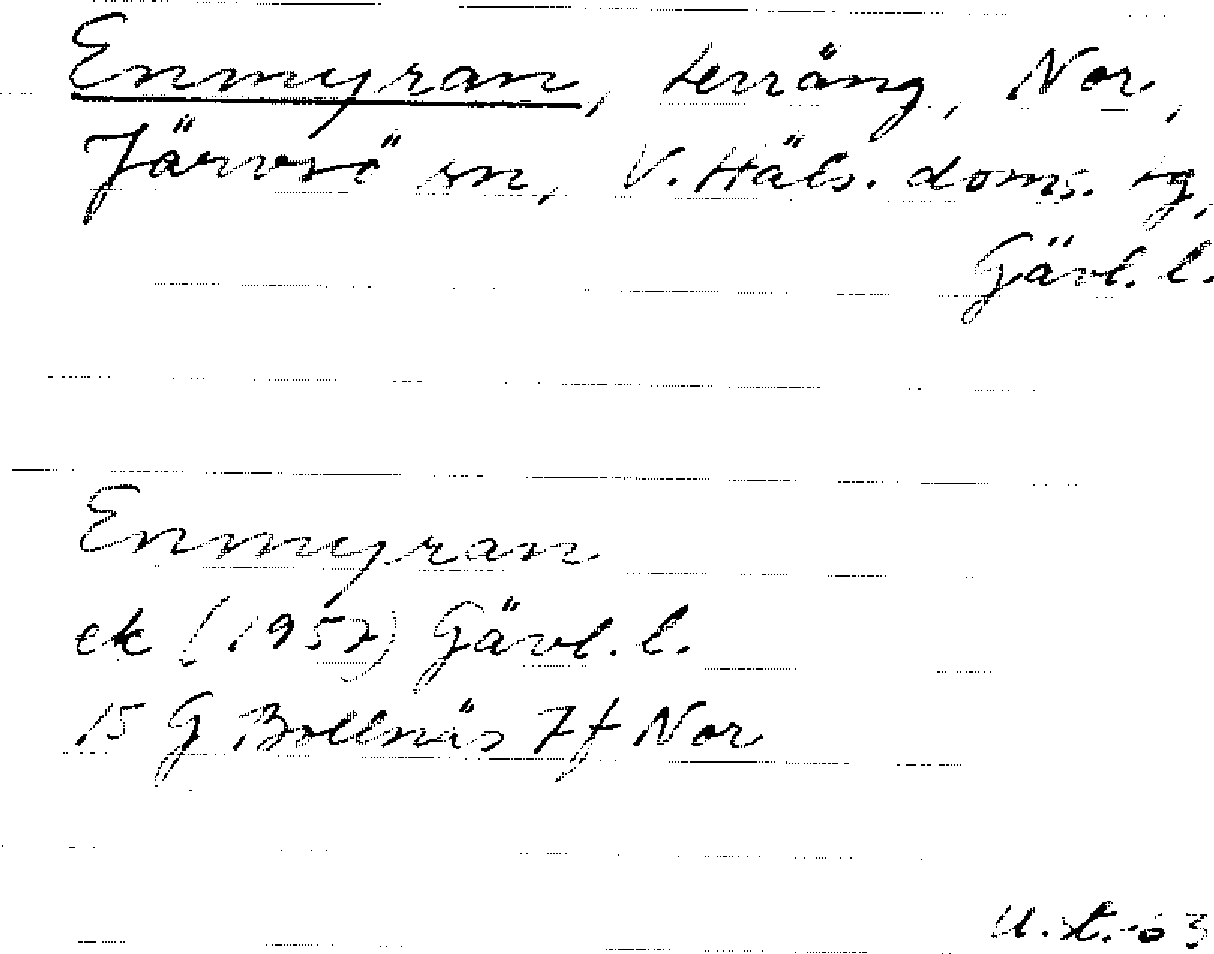 Enmyran, terräng, Nor,
Järvsö sn, V. Häls. doms. sg,
Gävl. l.
Enmyran
ek (1957) Gävl. l.
15 G Bollnäs 7f Nor
U. st. 63